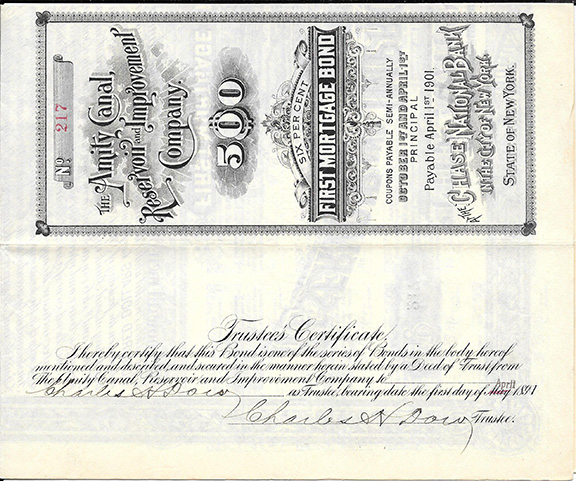 No 217
THE Amity Canal,
Reservoir and Improvement
Company.
500
SIX PER CENT
FIRST MORTGAGE BOND
COUPONS PAYABLE SEMI-ANNUALLY
OCTOBER 1ST AND APRIL 1ST
PRINCIPAL
Payable April 1ST 1901.
AT THE CHASE NATIONAL BANK
IN THE CITY OF NEW YORK.
STATE OF NEW YORK.
Trustee's Certificate.
I hereby certify that this Bond is one of the series of Bonds in the body hereof
mentioned and discribed, and secured in the manner herein stated by a Deed of Trust from
The Amity Canal, Reservoir and Improvement Company to
Charles H Dow as Trustee, bearing date the first day of May April 1891
Charles H Dow Trustee.